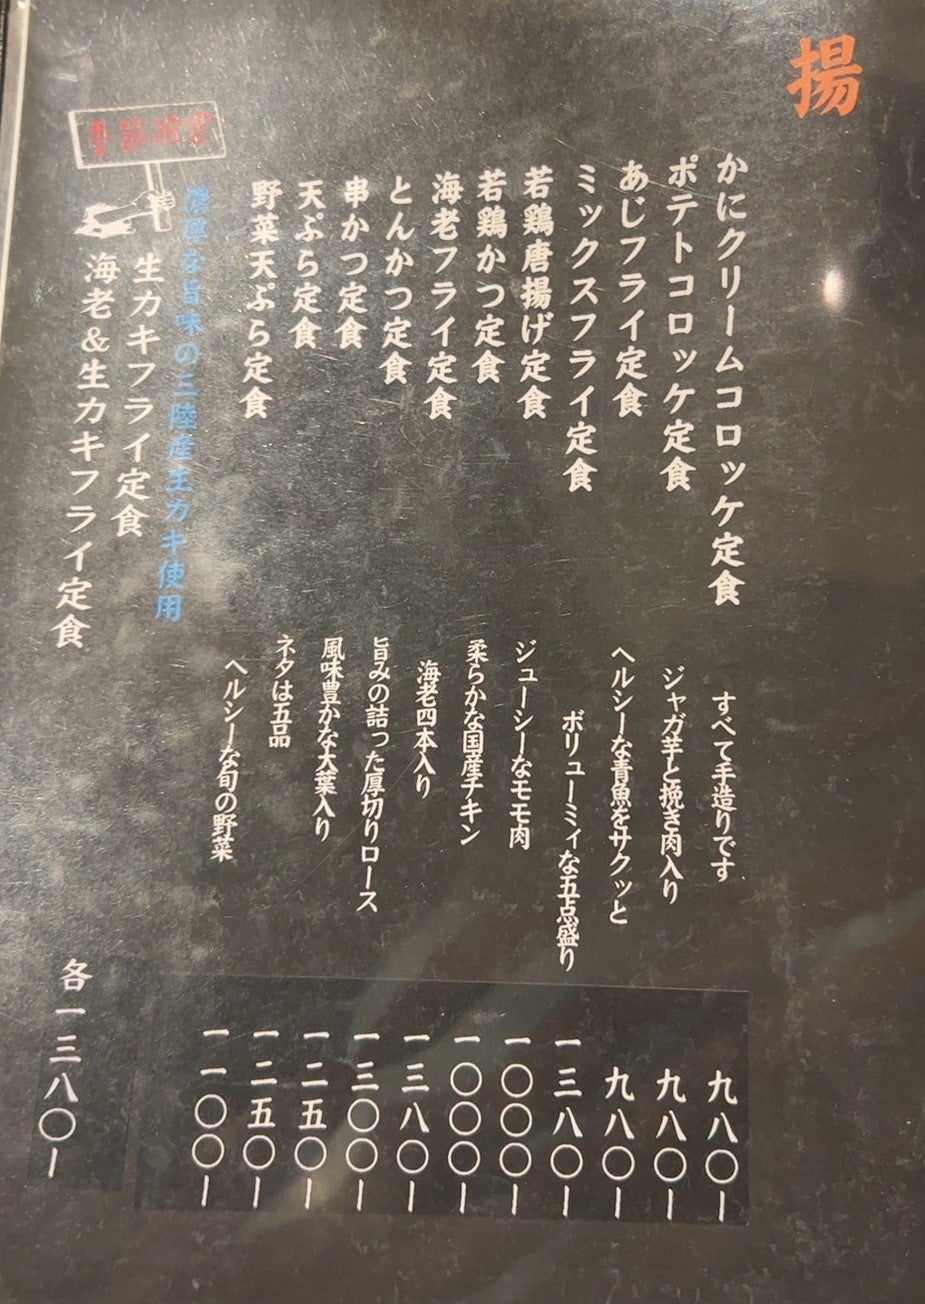 揚
かにクリームコロッケ定食 すべて手造りです 九八〇ー
ポテトコロッケ定食 ジャガ芋と挽き肉入り 九八〇ー
あじフライ定食 ヘルシーな青魚をサクッと 九八〇ー
ミックスフライ定食 ボリューミィな五点盛り 一三八〇ー
若鶏唐揚げ定食 ジューシーなモモ肉 一〇〇〇ー
若鶏かつ定食 柔らかな国産チキン 一〇〇〇ー
海老フライ定食 海老四本入り 一三八〇ー
とんかつ定食 旨みの詰った厚切りロース 一三〇〇ー
串かつ定食 風味豊かな大葉入り 一二五〇ー
天ぷら定食 ネタは五品 一二五〇ー
野菜天ぷら定食 ヘルシーな旬の野菜 一一〇〇ー
季節限定
濃厚な旨味の三陸産生カキ使用
生カキフライ定食
海老&生カキフライ定食 各一三八〇ー